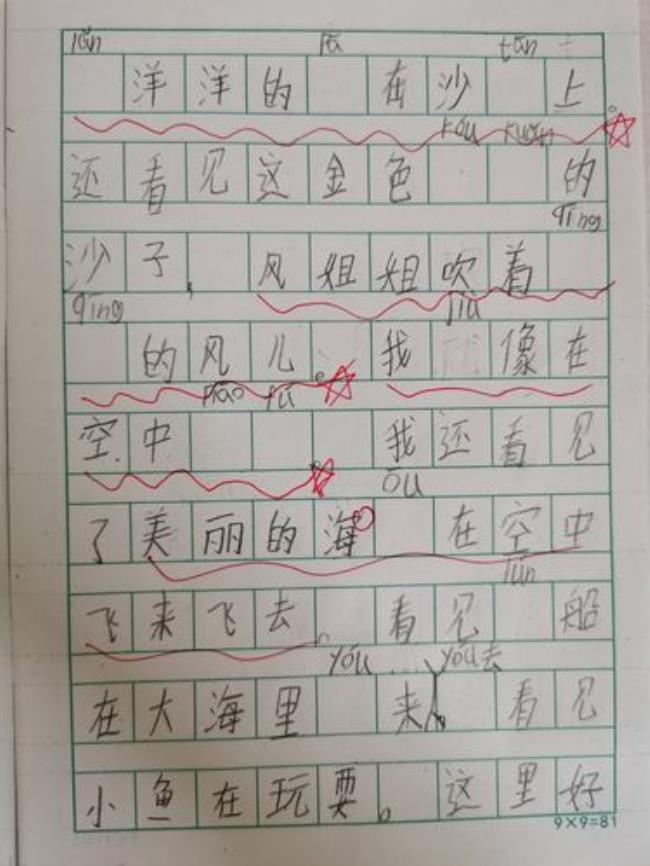 lǎn pā tān
洋洋的 在沙 上。
kóu kuān
还看见这金色 的
qīng
沙子,风姐姐吹着
qīng jiù
的风儿。我 像在
piāo fú
空中 我还看见
ōu
了美丽的海 在空中
lún
飞来飞去。看见 船
yóu yóu去
在大海里 来 看见
小鱼在玩耍。这里好
9×9=81